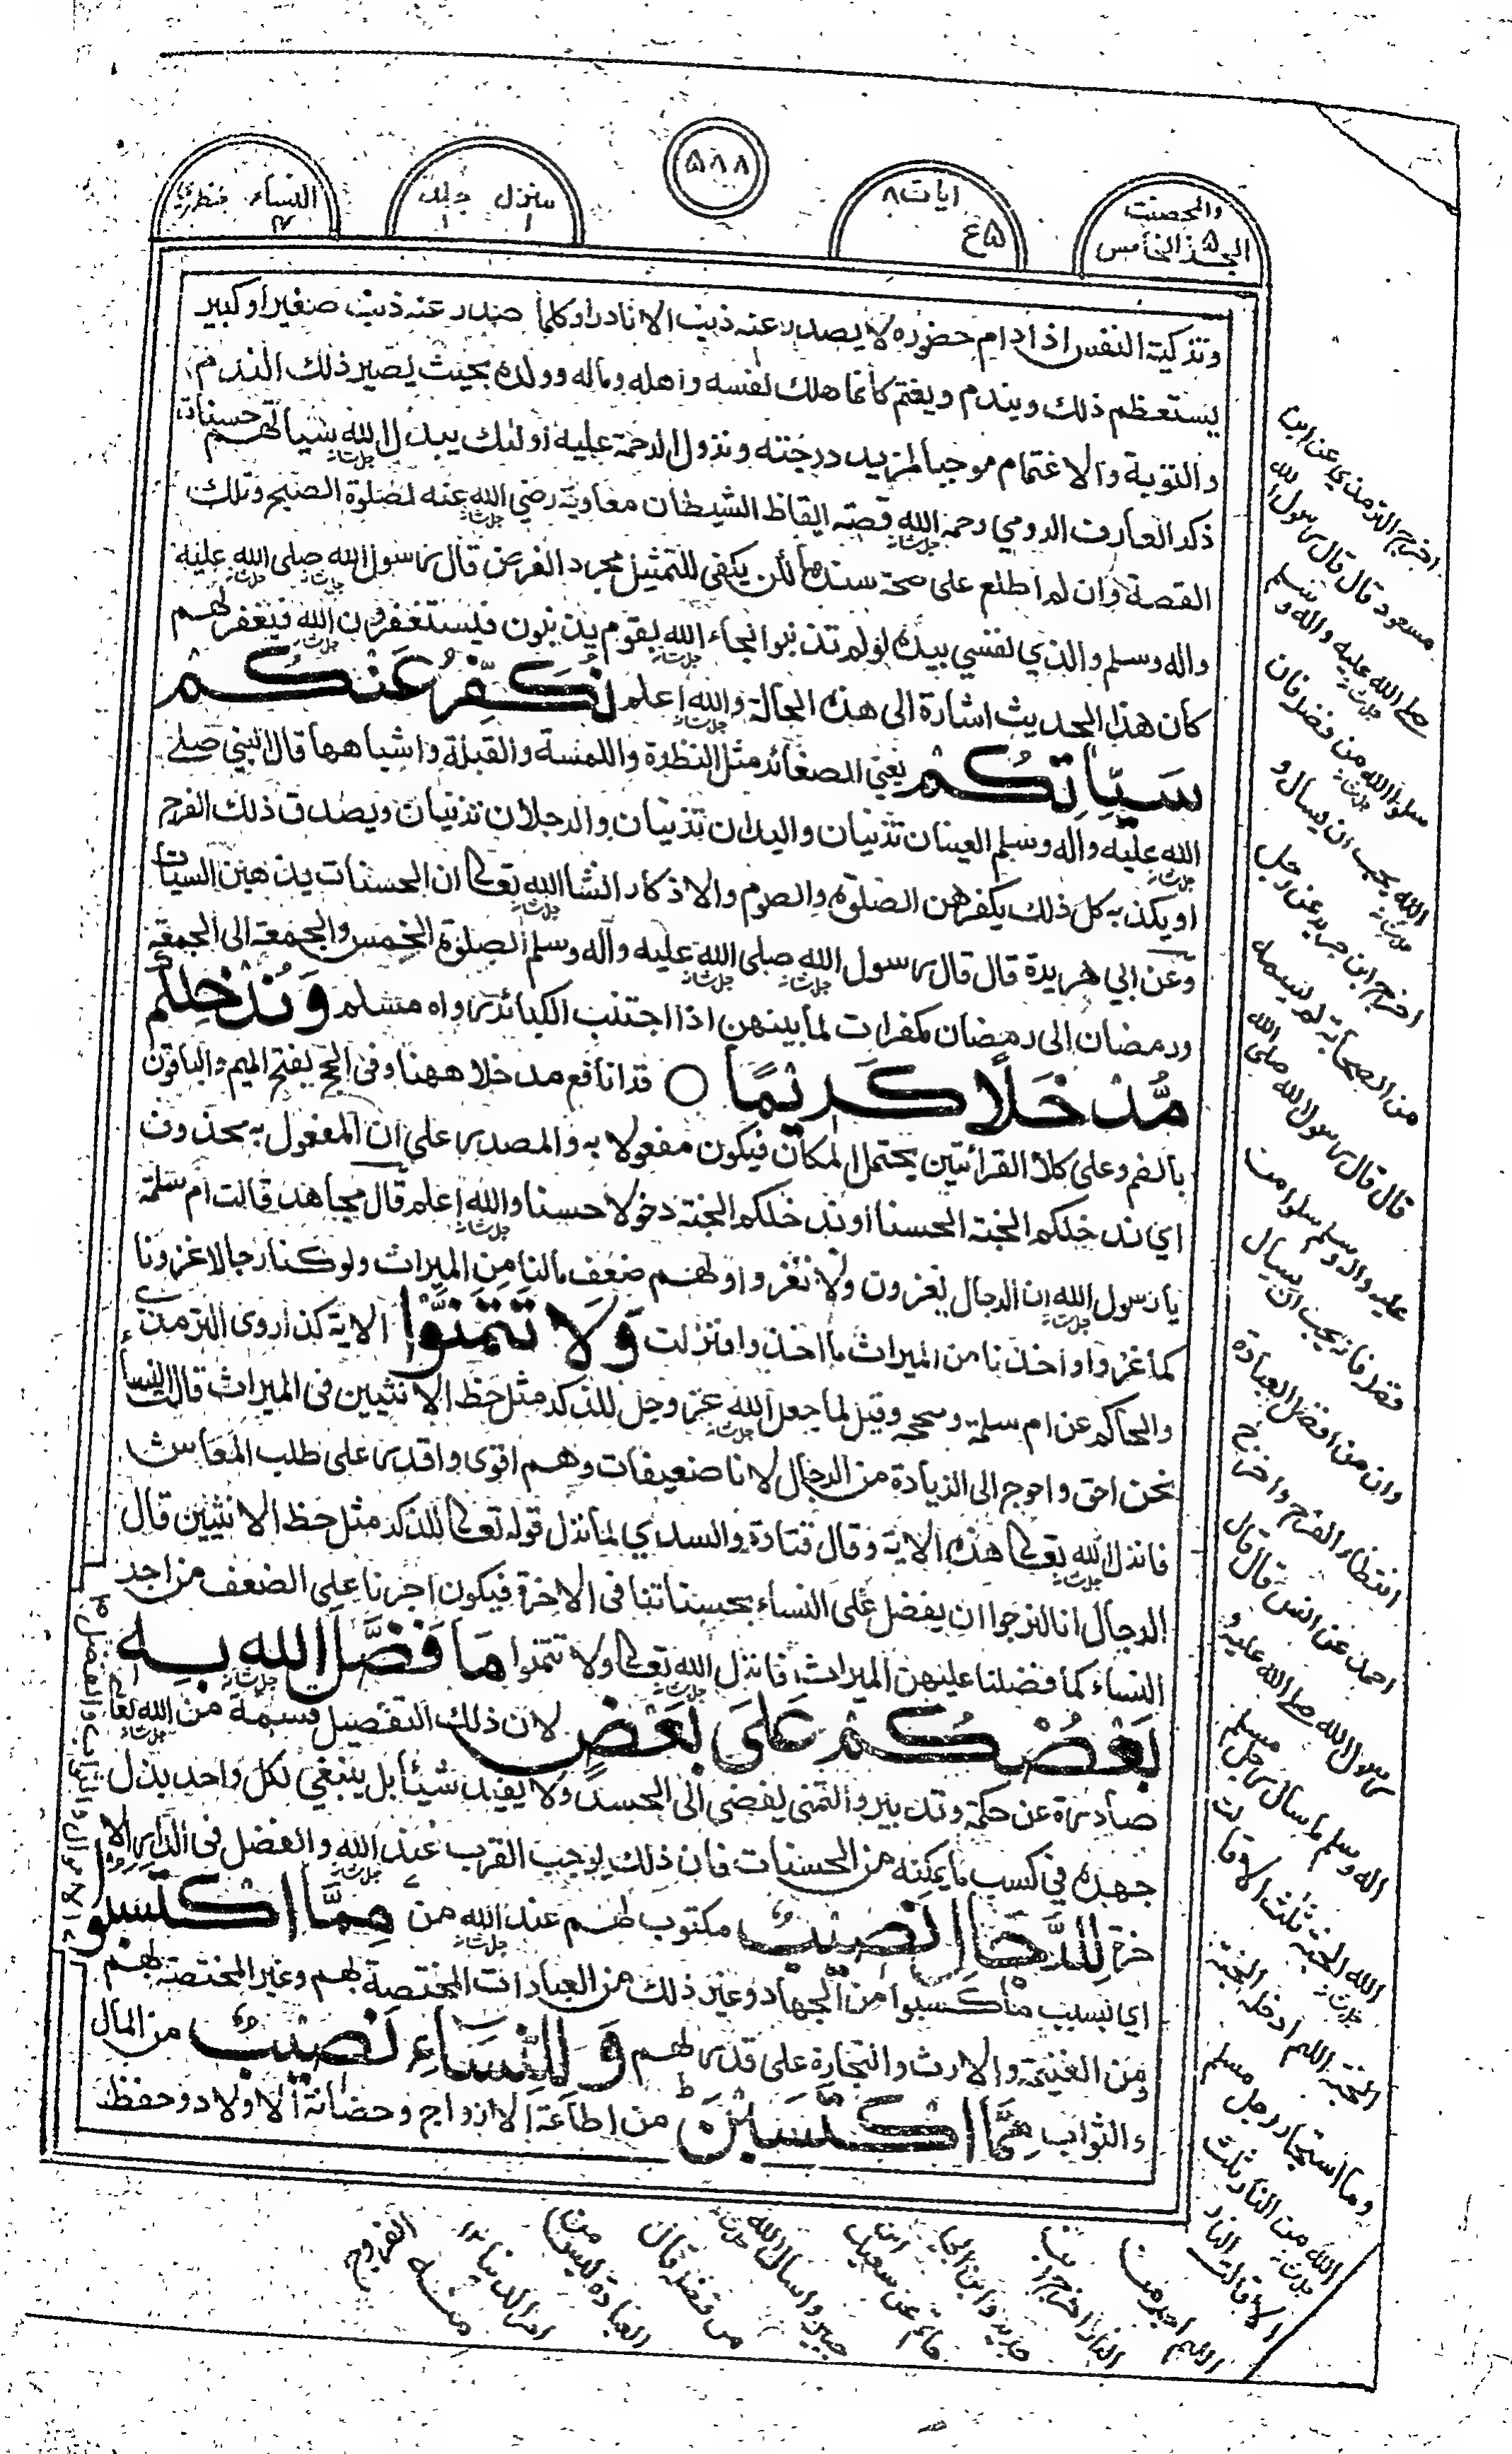 والمحصنت
الجزء الخامس ۵
ايات ۸
۵ ع
۵۸۸
منزل جلد
۱ ۱
النساء
۴
وتزكية النفس اذا دام حضوره لا يصدر عنه ذنب الا نادرا وكلما صدر عنه ذنب صغير او كبير
يستعظم ذلك ويندم ويغتم كأنما هلك نفسه واهله وماله وولده بحيث يصير ذلك الندم
والتوبة والاغتمام موجبا لمزيد درجته ونزول الرحمة عليه اولئك يبدل الله سياتهم حسنات
ذكر العارف الرومي رحمه الله قصة ايقاظ الشيطان معاوية رضي الله عنه لصلوة الصبح وتلك
القصة وان لم اطلع على صحة سندها لكن يكفى للتمثيل مجرد الفرض قال رسول الله صلى الله عليه
واله وسلم والذي نفسي بيده لو لم تذنبوا لجاء الله بقوم يذنبون فيستغفرون الله فيغفر لهم
كان هذا الحديث اشارة الى هذه الحالة والله اعلم نُكَفِّرْ عَنْكُمْ
سَيِّاٰتِكُمْ يعني الصغائر مثل النظرة واللمسة والقبلة واشباهها قال النبي صلى
الله عليه واله وسلم العينان تزنيان واليدان تزنيان والرجلان تزنيان ويصدق ذلك الفرج
او يكذبه كل ذلك يكفرهن الصلوة والصوم والاذكار انشا الله تعالى ان الحسنات يذهبن السيات
وعن ابي هريرة قال قال رسول الله صلى الله عليه وآله وسلم الصلوة الخمس والجمعة الى الجمعة
ورمضان الى رمضان مكفرات لما بينهن اذا اجتنب الكبائر رواه مسلم وَنُدْخِلْكُمْ
مُّدْخَلًا كَرِيْمًا ○ قرا نافع مدخلا ههنا وفى الحج بفتح الميم والباقون
بالضم وعلى كلا القرائتين يحتمل المكان فيكون مفعولا به والمصدر على ان المفعول به محذوف
اي ندخلكم الجنة الحسنا او ندخلكم الجنة دخولا حسنا والله اعلم قال مجاهد قالت ام سلمة
يا رسول الله ان الرجال يغزون ولا نغزوا ولهم ضعف مالنا من الميراث ولو كنا رجالا غزونا
كما غزوا واخذنا من الميراث ما اخذوا فنزلت وَلَا تَتَمَنَّوْا الاية كذا روى الترمذي
والحاكم عن ام سلمة وصححه وقيل لما جعل الله عز وجل للذكر مثل حظ الانثيين فى الميراث قالت النساء
نحن احق واحوج الى الزيادة من الرجال لانا ضعيفات وهم اقوى واقدر على طلب المعاش
فانزل الله تعالى هذه الاية وقال قتادة والسدي لما نزل قوله تعالى للذكر مثل حظ الانثيين قال
الرجال انا لنرجوا ان يفضل على النساء بحسناتنا فى الاخرة فيكون اجرنا على الضعف من اجر
النساء كما فضلنا عليهن الميراث فانزل الله تعالى ولا تتمنوا مَا فَضَّلَ اللهُ بِهٖ
بَعْضَكُمْ عَلٰى بَعْضٍ لان ذلك التفضيل قسمة من الله تعالى
صادرة عن حكمة وتدبير والتمنى يفضى الى الحسد ولا يفيد شيئا بل ينبغي لكل واحد بذل
جهده في كسب ما يمكنه من الحسنات فان ذلك يوجب القرب عند الله والفضل فى الدار الا
خرة لِلرِّجَالِ نَصِيْبٌ مكتوب لهم عند الله من مِمَّا اكْتَسَبُوْا
اي بسبب ما اكتسبوا من الجهاد وغير ذلك من العبادات المختصة بهم وغير المختصة بهم
ومن الغنيمة والارث والتجارة على قدر لهم وَلِلنِّسَاءِ نَصِيْبٌ من المال
والثواب مِّمَّا اكْتَسَبْنَ من اطاعة الازواج وحضانة الاولاد وحفظ
اخرج الترمذي عن ابن
مسعود قال قال رسول الله
صلى الله عليه واله وسلم
سلوا الله من فضله فان
الله يحب ان يسأل و
اخرج ابن جرير عن رجل
من الصحابة لم يسمه
قال قال رسول الله صلى الله
عليه واله وسلم سلوا من
فضله فانه يحب ان يسأل
وان من افضل العبادة
انتظار الفرج واخرج
احمد عن انس قال قال
رسول الله صلى الله عليه و
اله وسلم ما سال رجل مسلم
الله الجنة ثلث الا قالت
الجنة اللهم ادخله الجنة
وما استجار رجل مسلم
الله من النار ثلث
الا قالت النار
اللهم اجره من
النار اخرج ابن
جرير وابن ابي
حاتم عن سعيد بن
جبير واسالوا الله
من فضله قال
العبادة ليس من
امر الدنيا